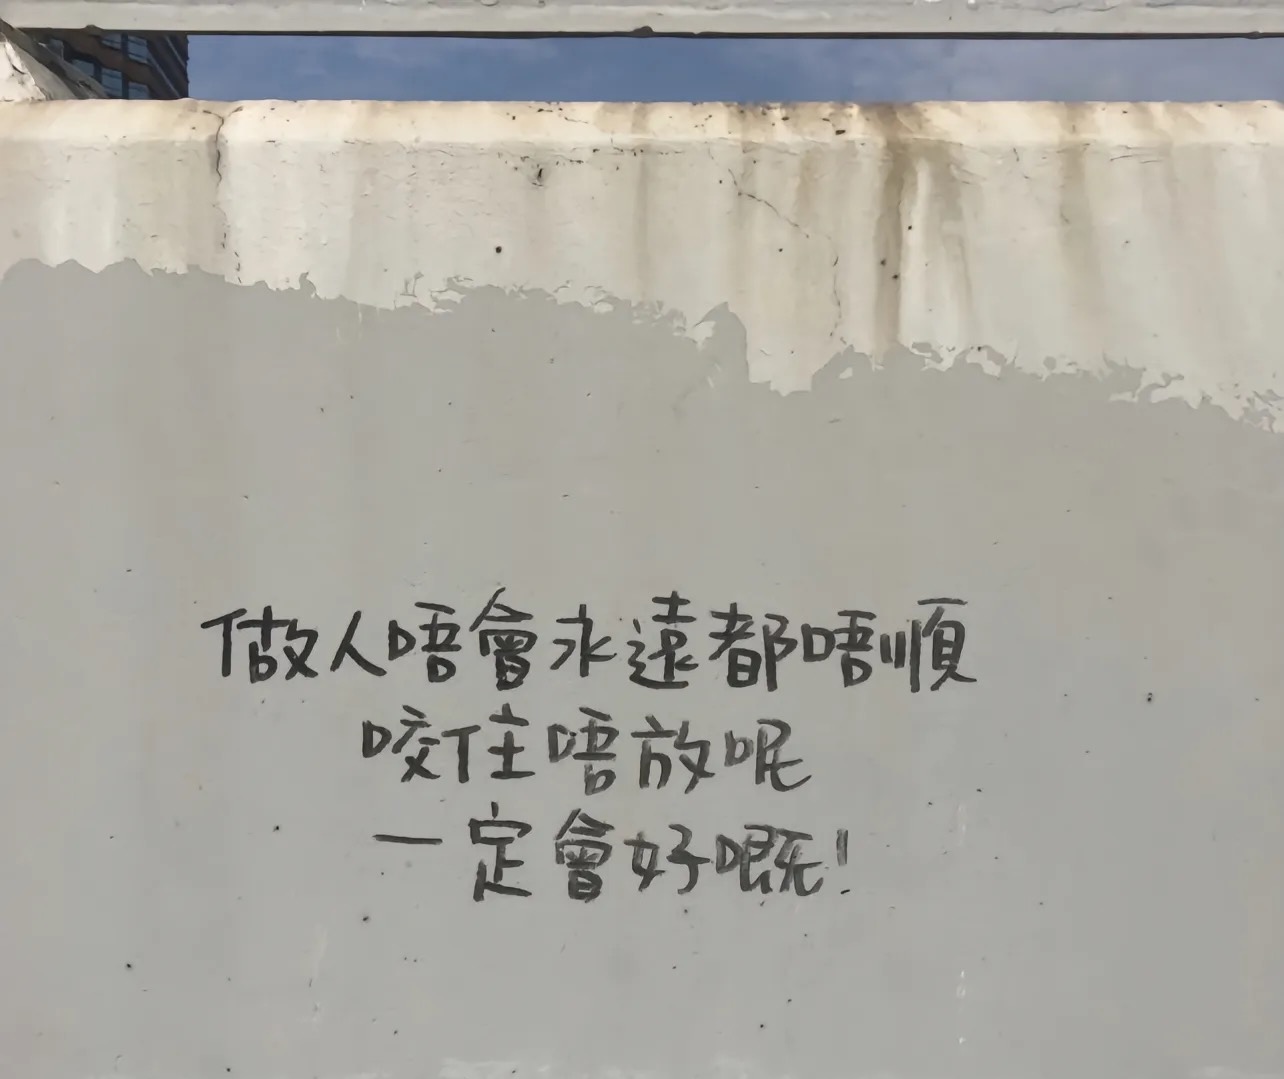 做人唔會永遠都唔順
咬住唔放呢
一定會好嘅!